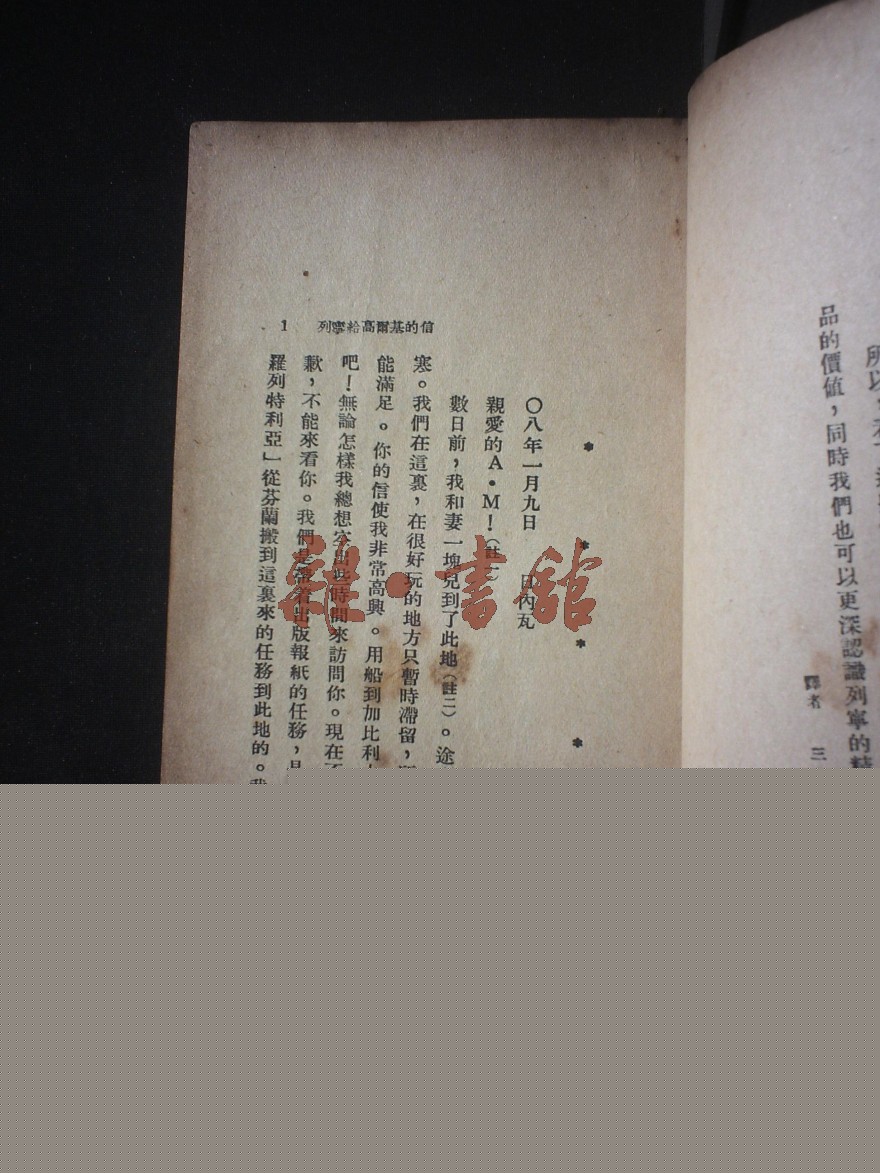 所以，
品的價值，同時我們也可以更深認識列寧的精
譯者 三
1 列寧給高爾基的信
* * * *
〇八年一月九日 日內瓦
親愛的A·M！（註一）
數日前，我和妻一塊兒到了此地（註二）。途
寒。我們在這裏，在很好玩的地方只暫時滯留，
能滿足。你的信使我非常高興。用船到加比利
吧！無論怎樣我總想空出些時間來訪問你。現在
歉，不能來看你。我們是帶着出版報紙的任務，
羅列特利亞」從芬蘭搬到這裏來的任務到此地的。我
雜·書館